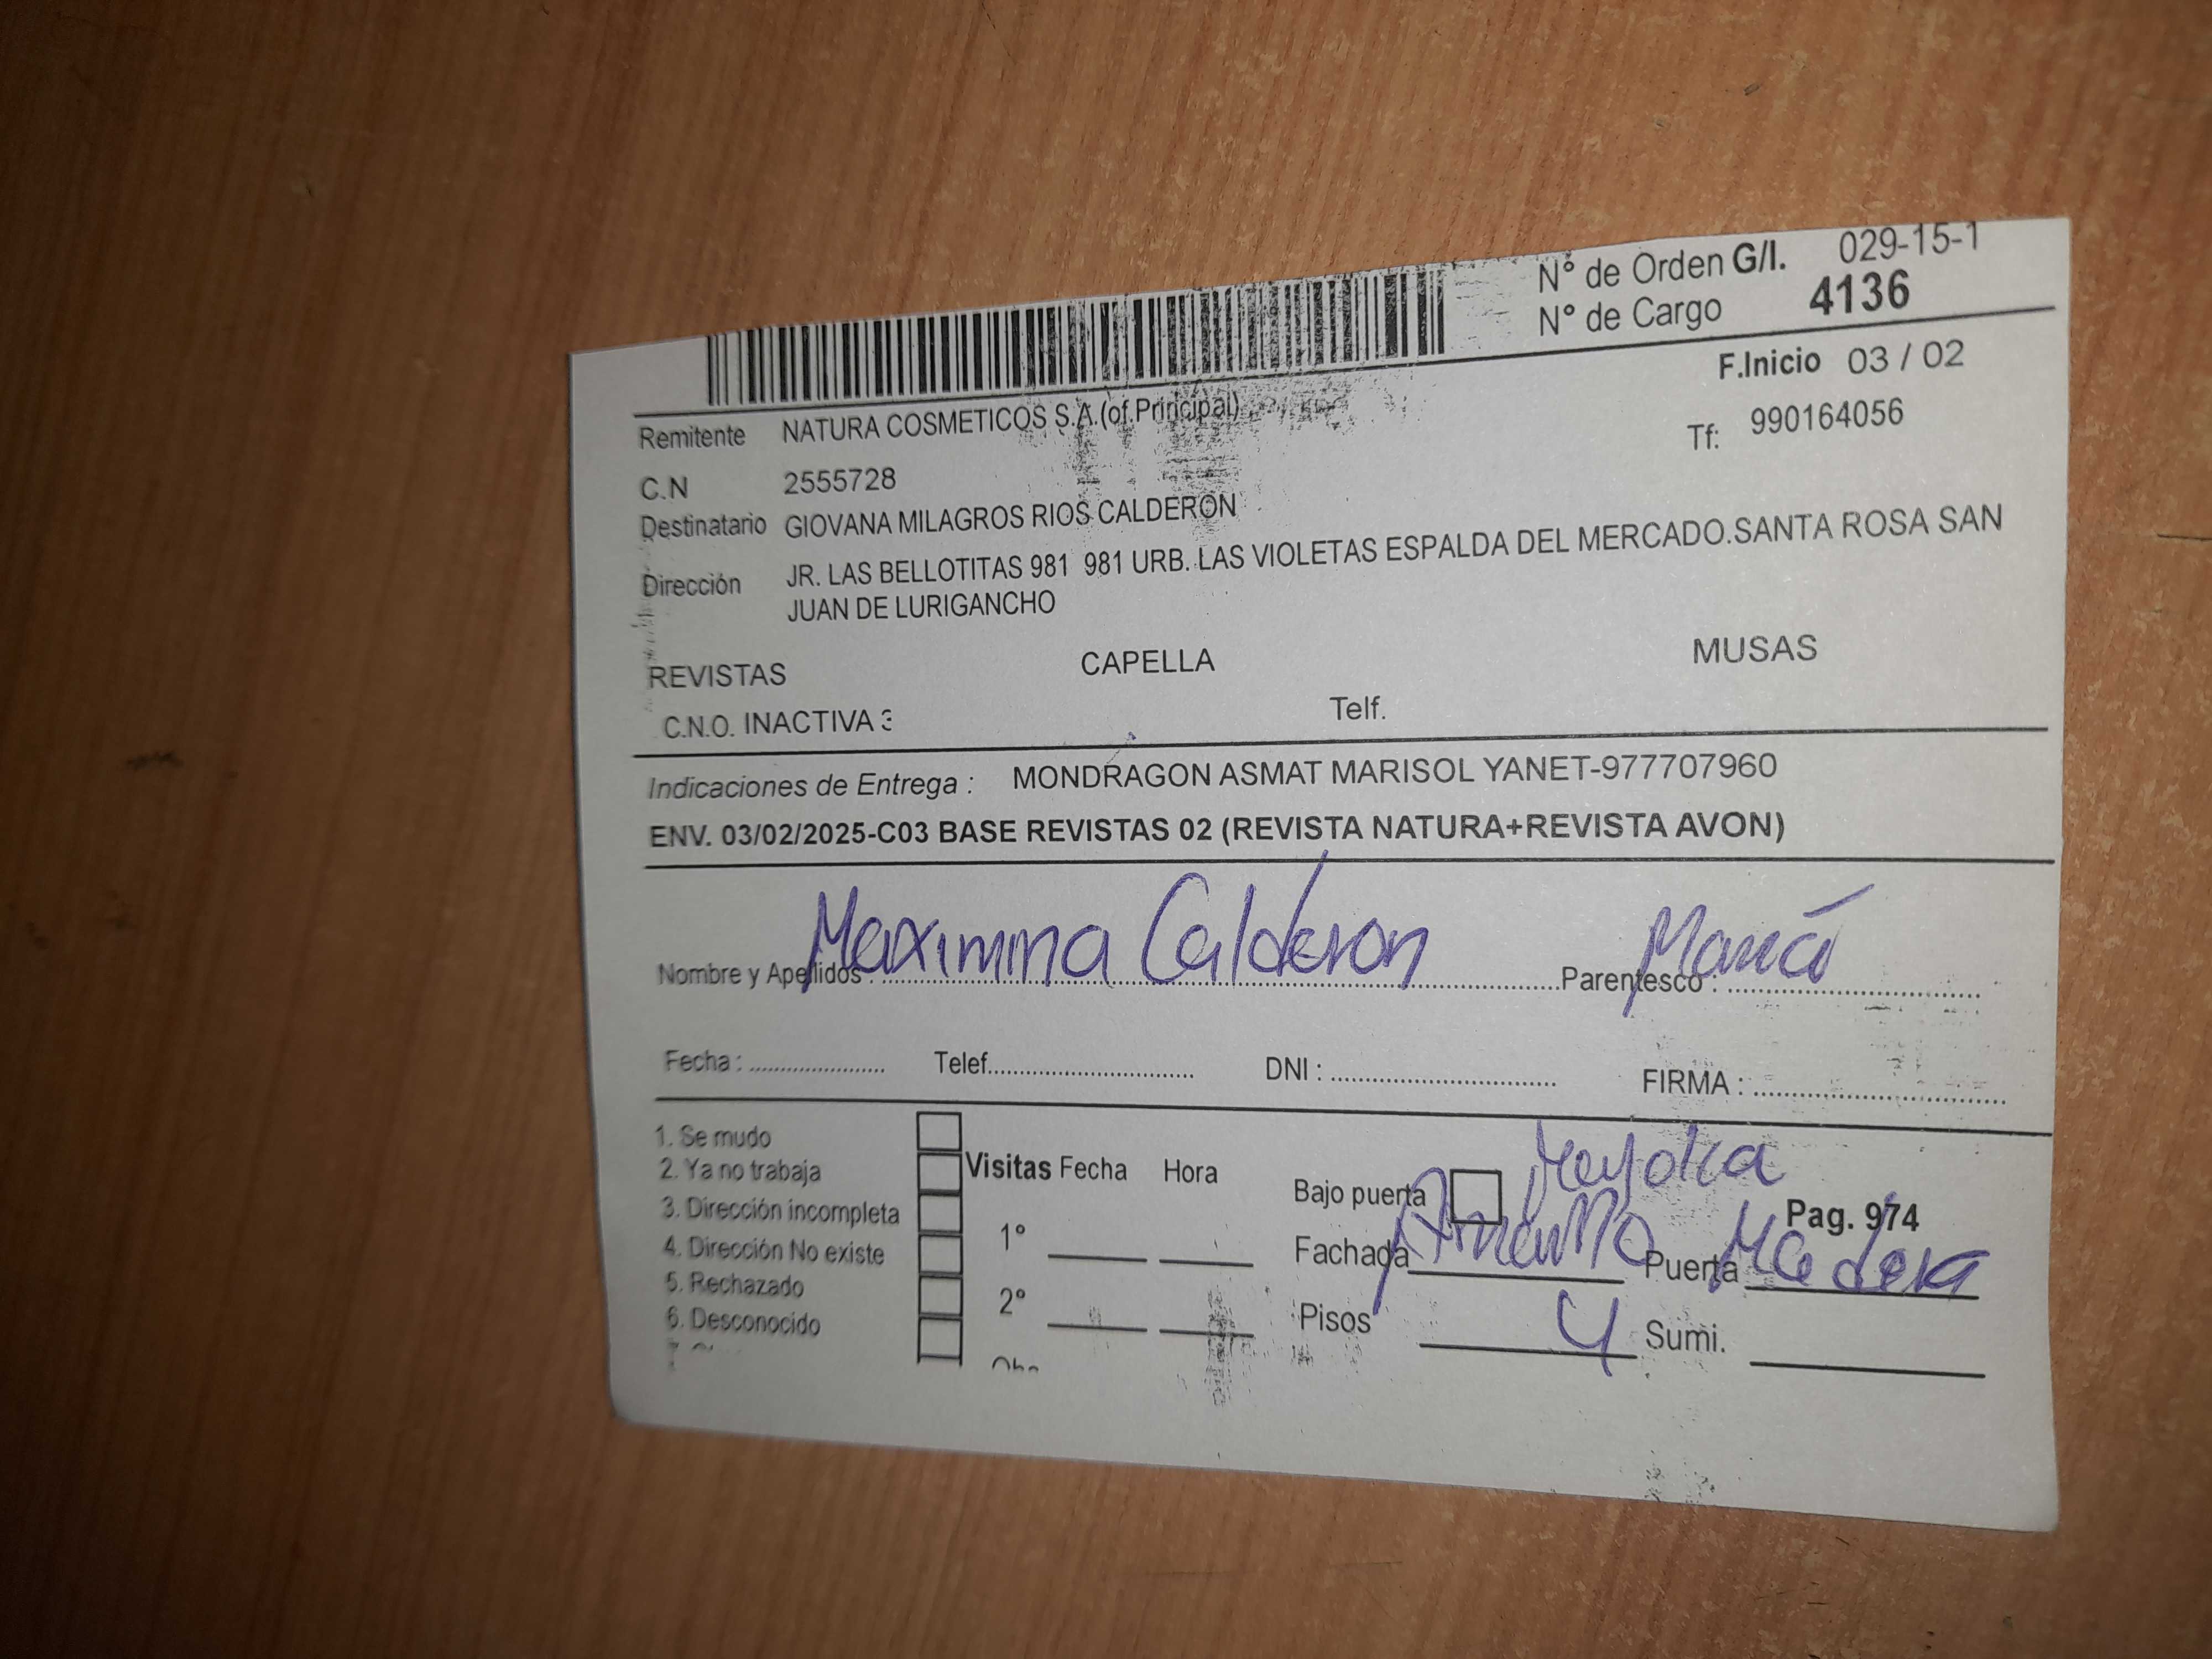 N° de Orden G/I. 029-15-1
N° de Cargo 4136
F.Inicio 03 / 02
Remitente NATURA COSMETICOS S.A.(of.Principal)
Tf: 990164056
C.N 2555728
Destinatario GIOVANA MILAGROS RIOS CALDERON
Dirección JR. LAS BELLOTITAS 981 981 URB. LAS VIOLETAS ESPALDA DEL MERCADO.SANTA ROSA SAN
JUAN DE LURIGANCHO
REVISTAS CAPELLA MUSAS
C.N.O. INACTIVA 3 Telf.
Indicaciones de Entrega : MONDRAGON ASMAT MARISOL YANET-977707960
ENV. 03/02/2025-C03 BASE REVISTAS 02 (REVISTA NATURA+REVISTA AVON)
Nombre y Apellidos : Maximina Calderon Parentesco : Mamá
Fecha : Telef. DNI : FIRMA :
1. Se mudo
2. Ya no trabaja
3. Dirección incompleta
4. Dirección No existe
5. Rechazado
6. Desconocido
Visitas Fecha Hora
1°
2°
Bajo puerta
Pag. 974
Fachada Amarillo Puerta Madera
Pisos 4 Sumi.